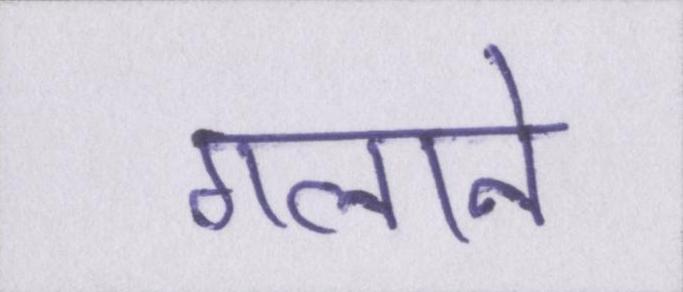 गलाने